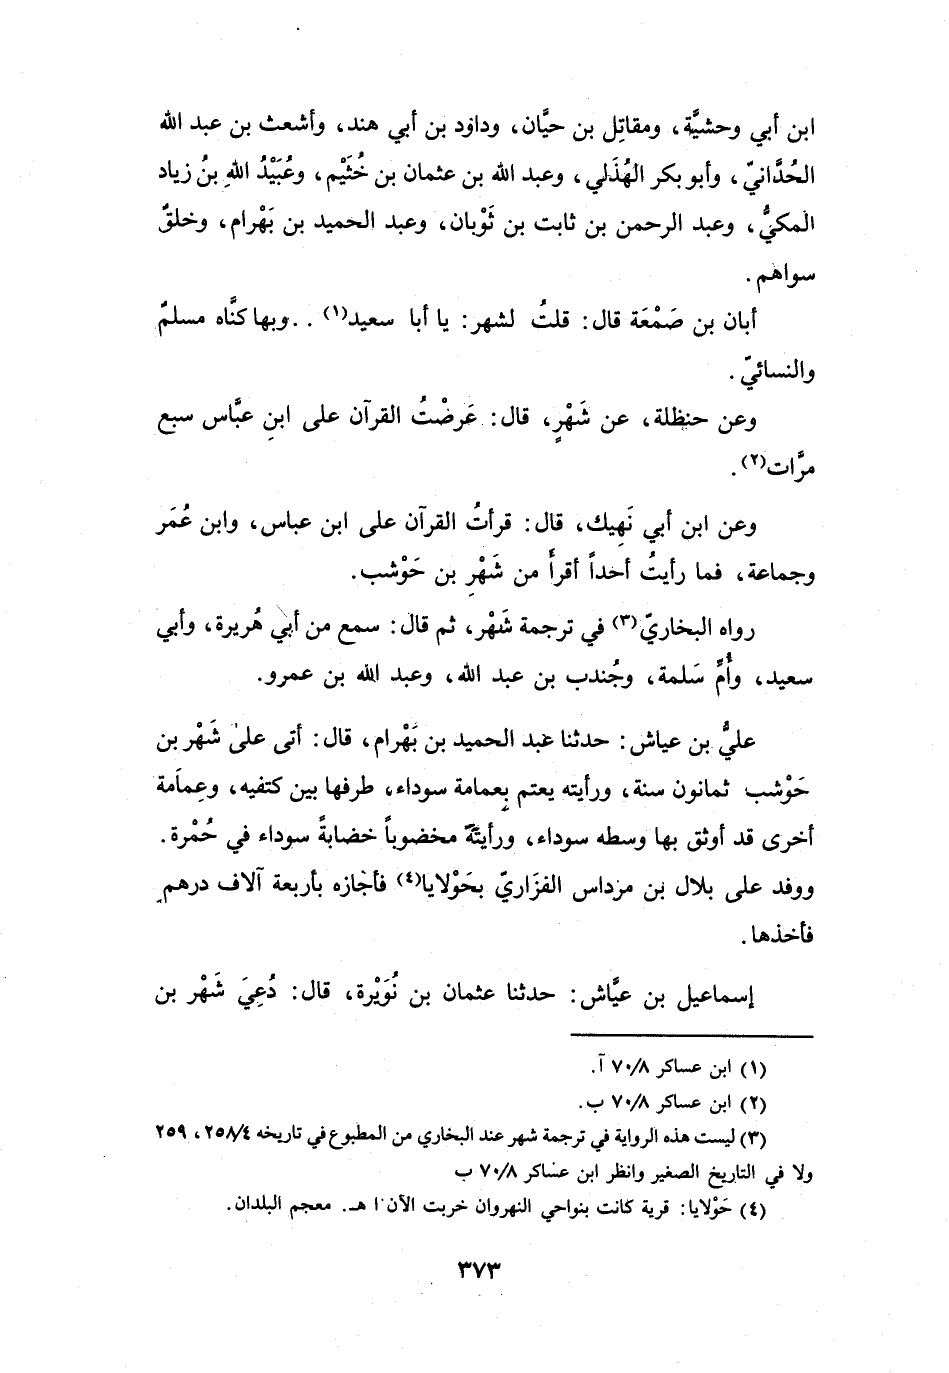 ابن أبي وحشيَّة، ومقاتِل بن حيَّان، وداود بن أبي هند، وأشعث بن عبد الله
الحُدَّانيّ، وأبو بكر الهُذَلي، وعبد الله بن عثمان بن خُثَيْم، وعُبَيْدُ اللهِ بنُ زياد
المكيُّ، وعبد الرحمن بن ثابت بن ثَوْبان، وعبد الحميد بن بَهْرام، وخلقٌ
سواهم.
أبان بن صَمْعَة قال: قلتُ لشهر: يا أبا سعيد(١) .. وبها كنَّاه مسلمٌ
والنسائيّ.
وعن حنظلة، عن شَهْرٍ، قال: عَرضْتُ القرآن على ابنِ عبَّاس سبع
مرَّات(٢).
وعن ابن أبي نَهِيك، قال: قرأتُ القرآن على ابن عباس، وابن عُمَر
وجماعة، فما رأيتُ أحداً أقرأَ من شَهْرِ بن حَوْشب.
رواه البخاريّ(٣) في ترجمة شَهْر، ثم قال: سمع من أبي هُريرة، وأبي
سعيد، وأُمِّ سَلمة، وجُندب بن عبد الله، وعبد الله بن عمرو.
عليُّ بن عياش: حدثنا عبد الحميد بن بَهْرام، قال: أتى علىٰ شَهْر بن
حَوْشب ثمانون سنة، ورأيته يعتم بِعمامة سوداء، طرفها بين كتفيه، وعِمامة
أخرى قد أوثق بها وسطه سوداء، ورأيتُهُ مخضوباً خضابةً سوداء في حُمْرة.
ووفد على بلال بن مرداس الفزَاريّ بحَوْلايا(٤) فأجازه بأربعة آلاف درهم
فأخذها.
إسماعيل بن عيَّاش: حدثنا عثمان بن نُوَيْرة، قال: دُعِيَ شَهْر بن
(١) ابن عساكر ٧٠/٨ آ.
(٢) ابن عساكر ٧٠/٨ ب.
(٣) ليست هذه الرواية في ترجمة شهر عند البخاري من المطبوع في تاريخه ٢٥٨/٤، ٢٥٩
ولا في التاريخ الصغير وانظر ابن عساكر ٧٠/٨ ب
(٤) حَوْلايا: قرية كانت بنواحي النهروان خربت الآن ا هـ. معجم البلدان.
٣٧٣